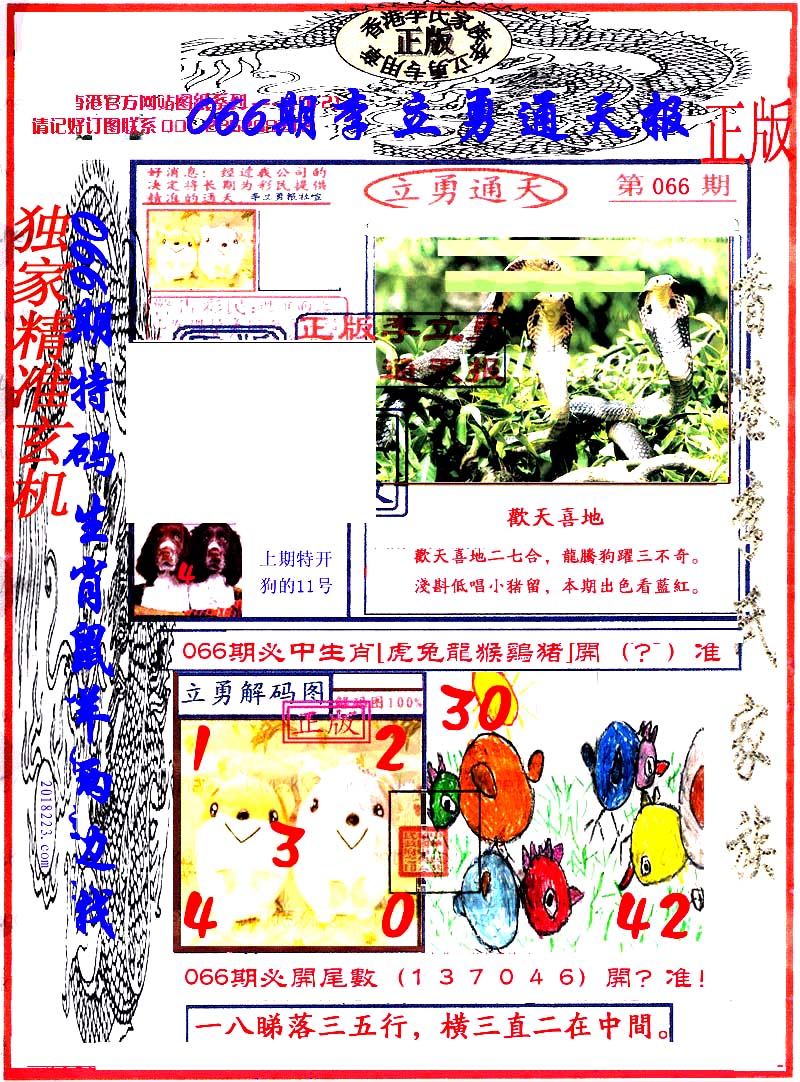 香港李氏家族
正版
李立勇专用章
香港官方网站图纸系列
请记好订图联系
066期李立勇通天报
正版
好消息: 经过我公司的
决定将长期为彩民提供
精准的通天。李立勇报社宣
立勇通天
第 066 期
独家精准玄机
066期特码生肖鼠羊两边找
正版李立勇
通天报
4
上期特开
狗的11号
歡天喜地
歡天喜地二七合，龍騰狗躍三不奇。
淺斟低唱小猪留，本期出色看藍紅。
066期必中生肖[虎兔龍猴鷄猪]開（?）准
立勇解码图
解码图100%
正版
1
2
3
4
0
30
42
066期必開尾數（1 3 7 0 4 6）開? 准!
一八睇落三五行，橫三直二在中間。
2018223.com